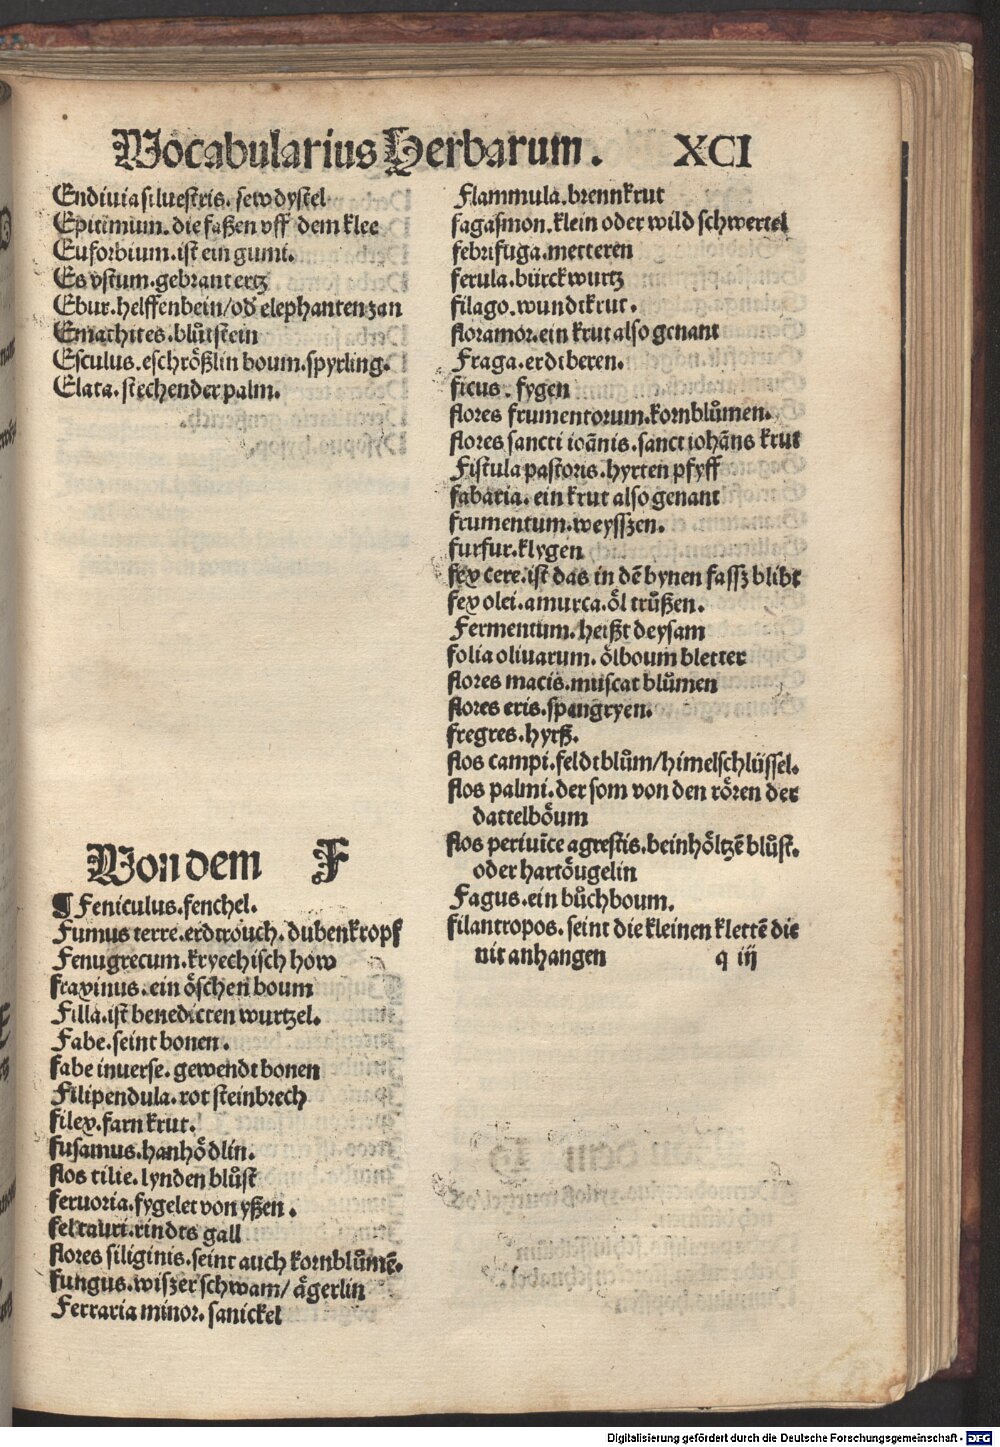 Vocabularius Herbarum. XCI
Endiuia siluestris. sewdystel
Epitimum. die faßen vff dem klee
Euforbium. ist ein gumi.
Es vstum. gebrant ertz
Ebur. helffenbein/od elephantenzan
Emathites. blůtstein
Esculus. eschrößlin boum. spyrling.
Elata. stechender palm.
Von dem F
¶ Feniculus. fenchel.
Fumus terre. erdtrouch. dubenkropf
Fenugrecum. kryechisch how
fraxinus. ein öschen boum
Filla. ist benedicten wurtzel.
Fabe. seint bonen.
fabe inuerse. gewendt bonen
Filipendula. rot steinbrech
filex. farn krut.
fusamus. hanhödlin.
flos tilie. lynden blůst
feruoria. fygelet von yßen.
fel tauri. rindts gall
flores siliginis. seint auch kornblůmē.
fungus. wiszer schwam/ ägerlin
Ferraria minor. sanickel
Flammula. brennkrut
fagasmon. klein oder wild schwertel
febrifuga. metteren
ferula. bürckwurtz
filago. wundtkrut.
floramor. ein krut also genant
Fraga. erdtberen.
ficus. fygen
flores frumentorum. kornblůmen.
flores sancti ioānis. sanct iohāns krut
Fistula pastoris. hyrten pfyff
fabaria. ein krut also genant
frumentum. weysszen.
furfur. klygen
fex cere. ist das in dē bynen fassz blibt
fex olei. amurca. öl trůßen.
Fermentum. heißt deysam
folia oliuarum. ölboum bletter
flores macis. muscat blůmen
flores eris. spangryen.
fregres. hyrß.
flos campi. feldtblům/himelschlüssel.
flos palmi. der som von den rören der
dattelböum
flos periuīce agrestis. beinhöltzē blůst.
oder hartöugelin
Fagus. ein bůchboum.
filantropos. seint die kleinen klettē die
nit anhangen q iij
Digitalisierung gefördert durch die Deutsche Forschungsgemeinschaft - DFG